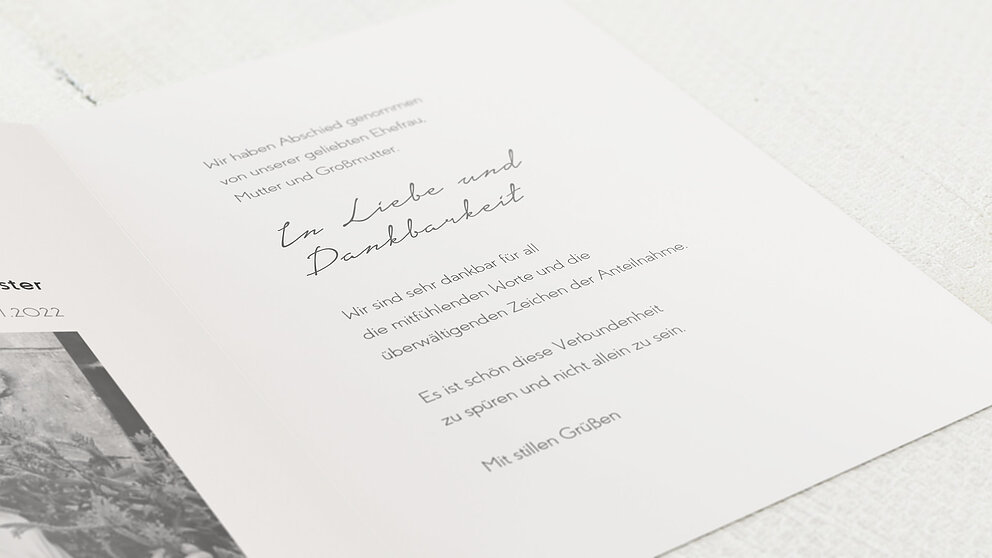 ster
1.2022
Wir haben Abschied genommen
von unserer geliebten Ehefrau,
Mutter und Großmutter.
In Liebe und
Dankbarkeit
Wir sind sehr dankbar für all
die mitfühlenden Worte und die
überwältigenden Zeichen der Anteilnahme.
Es ist schön diese Verbundenheit
zu spüren und nicht allein zu sein.
Mit stillen Grüßen